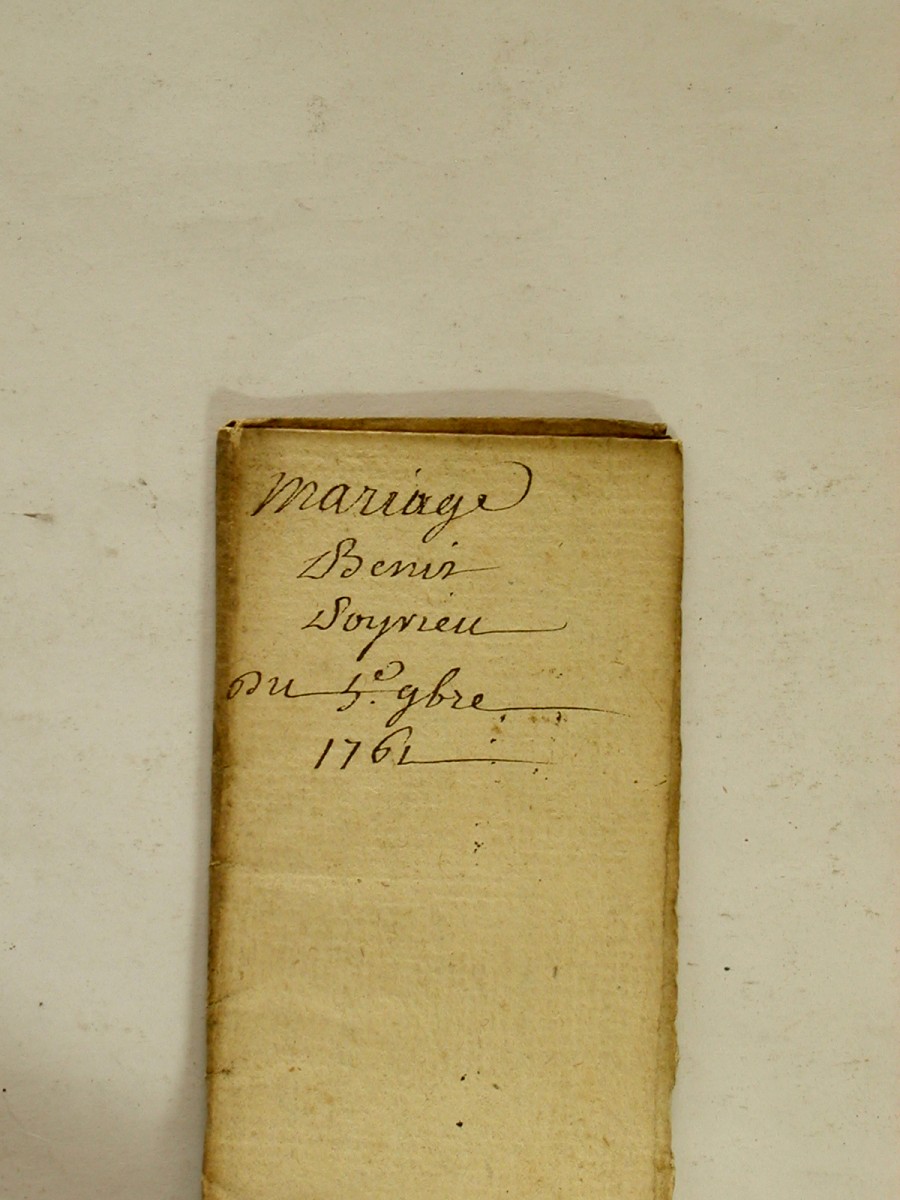 Mariage
Benit
Soyrieu
Du 5.e 9bre
1761